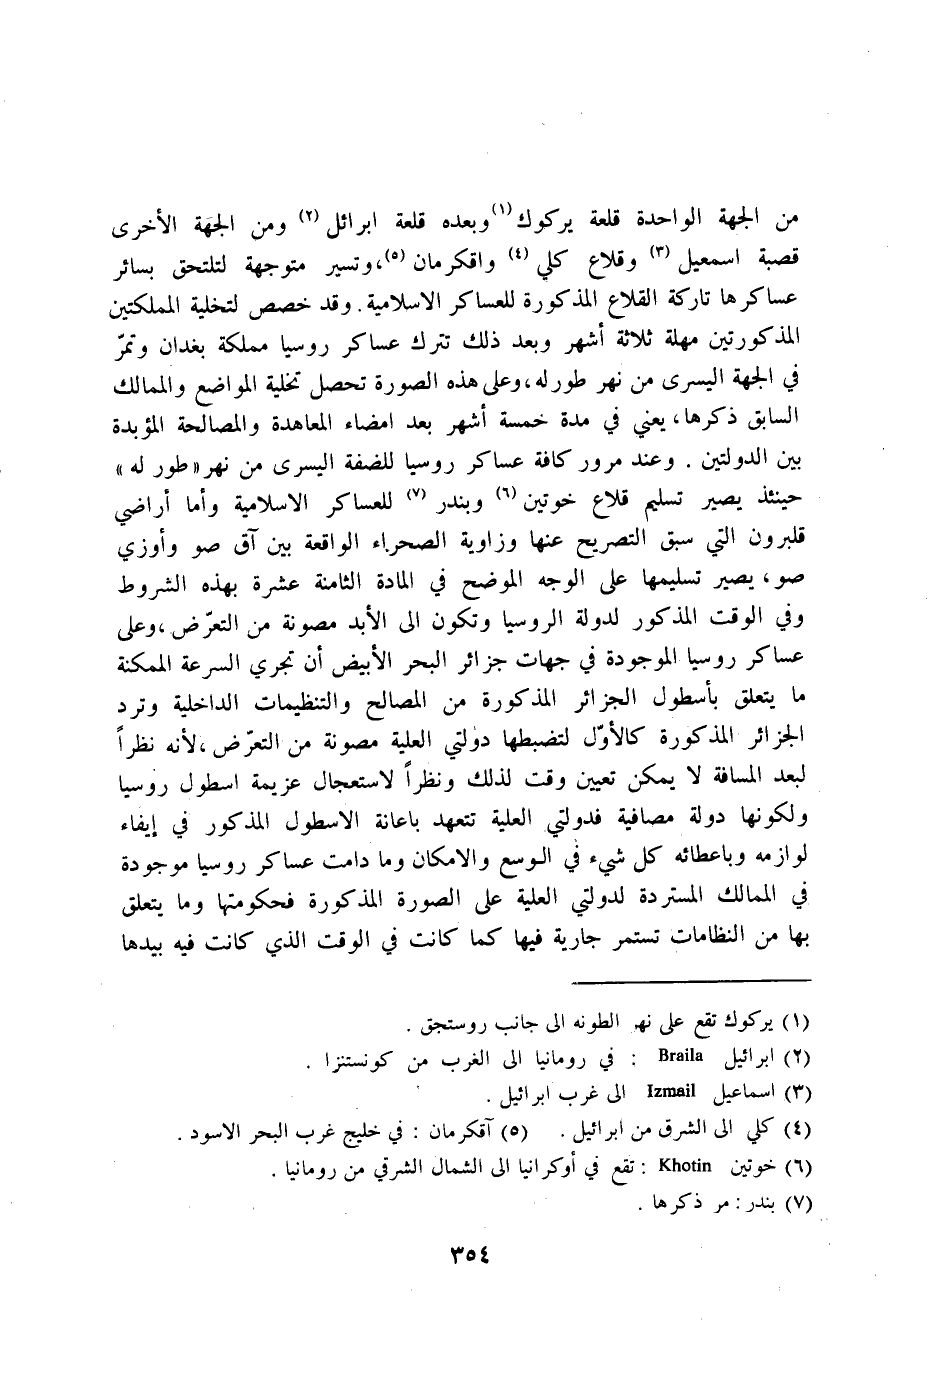 من الجهة الواحدة قلعة يركوك (١) وبعده قلعة ابرائل (٢) ومن الجهة الأخرى
قصبة اسمعيل (٣) وقلاع كلي (٤) واقكرمان (٥)، وتسير متوجهة لتلتحق بسائر
عساكرها تاركة القلاع المذكورة للعساكر الاسلامية . وقد خصص لتخلية المملكتين
المذكورتين مهلة ثلاثة أشهر وبعد ذلك تترك عساكر روسيا مملكة بغدان وتمرّ
في الجهة اليسرى من نهر طورله ، وعلى هذه الصورة تحصل تخلية المواضع والممالك
السابق ذكرها ، يعني في مدة خمسة أشهر بعد امضاء المعاهدة والمصالحة المؤبدة
بين الدولتين . وعند مرور كافة عساكر روسيا للضفة اليسرى من نهر « طور له »
حينئذ يصير تسليم قلاع خوتين (٦) وبندر (٧) للعساكر الاسلامية وأما أراضي
قلبرون التي سبق التصريح عنها وزاوية الصحراء الواقعة بين آق صو وأوزي
صو ، يصير تسليمها على الوجه الموضح في المادة الثامنة عشرة بهذه الشروط
وفي الوقت المذكور لدولة الروسيا وتكون الى الأبد مصونة من التعرّض ، وعلى
عساكر روسيا الموجودة في جهات جزائر البحر الأبيض أن تجري السرعة الممكنة
ما يتعلق بأسطول الجزائر المذكورة من المصالح والتنظيمات الداخلية وترد
الجزائر المذكورة كالأوّل لتضبطها دولتي العلية مصونة من التعرّض ، لأنه نظراً
لبعد المسافة لا يمكن تعيين وقت لذلك ونظراً لاستعجال عزيمة اسطول روسيا
ولكونها دولة مصافية فدولتي العلية تتعهد باعانة الاسطول المذكور في إيفاء
لوازمه وباعطائه كل شيء في الوسع والامكان وما دامت عساكر روسيا موجودة
في الممالك المستردة لدولتي العلية على الصورة المذكورة فحكومتها وما يتعلق
بها من النظامات تستمر جارية فيها كما كانت في الوقت الذي كانت فيه بيدها
(١) يركوك تقع على نهر الطونه الى جانب روستجق .
(٢) ابرائيل Braila : في رومانيا الى الغرب من كونستنزا .
(٣) اسماعيل Izmail الى غرب ابرائيل .
(٤) كلي الى الشرق من ابرائيل . (٥) آقكرمان : في خليج غرب البحر الاسود .
(٦) خوتين Khotin : تقع في أوكرانيا الى الشمال الشرقي من رومانيا .
(٧) بندر : مر ذكرها .
٣٥٤